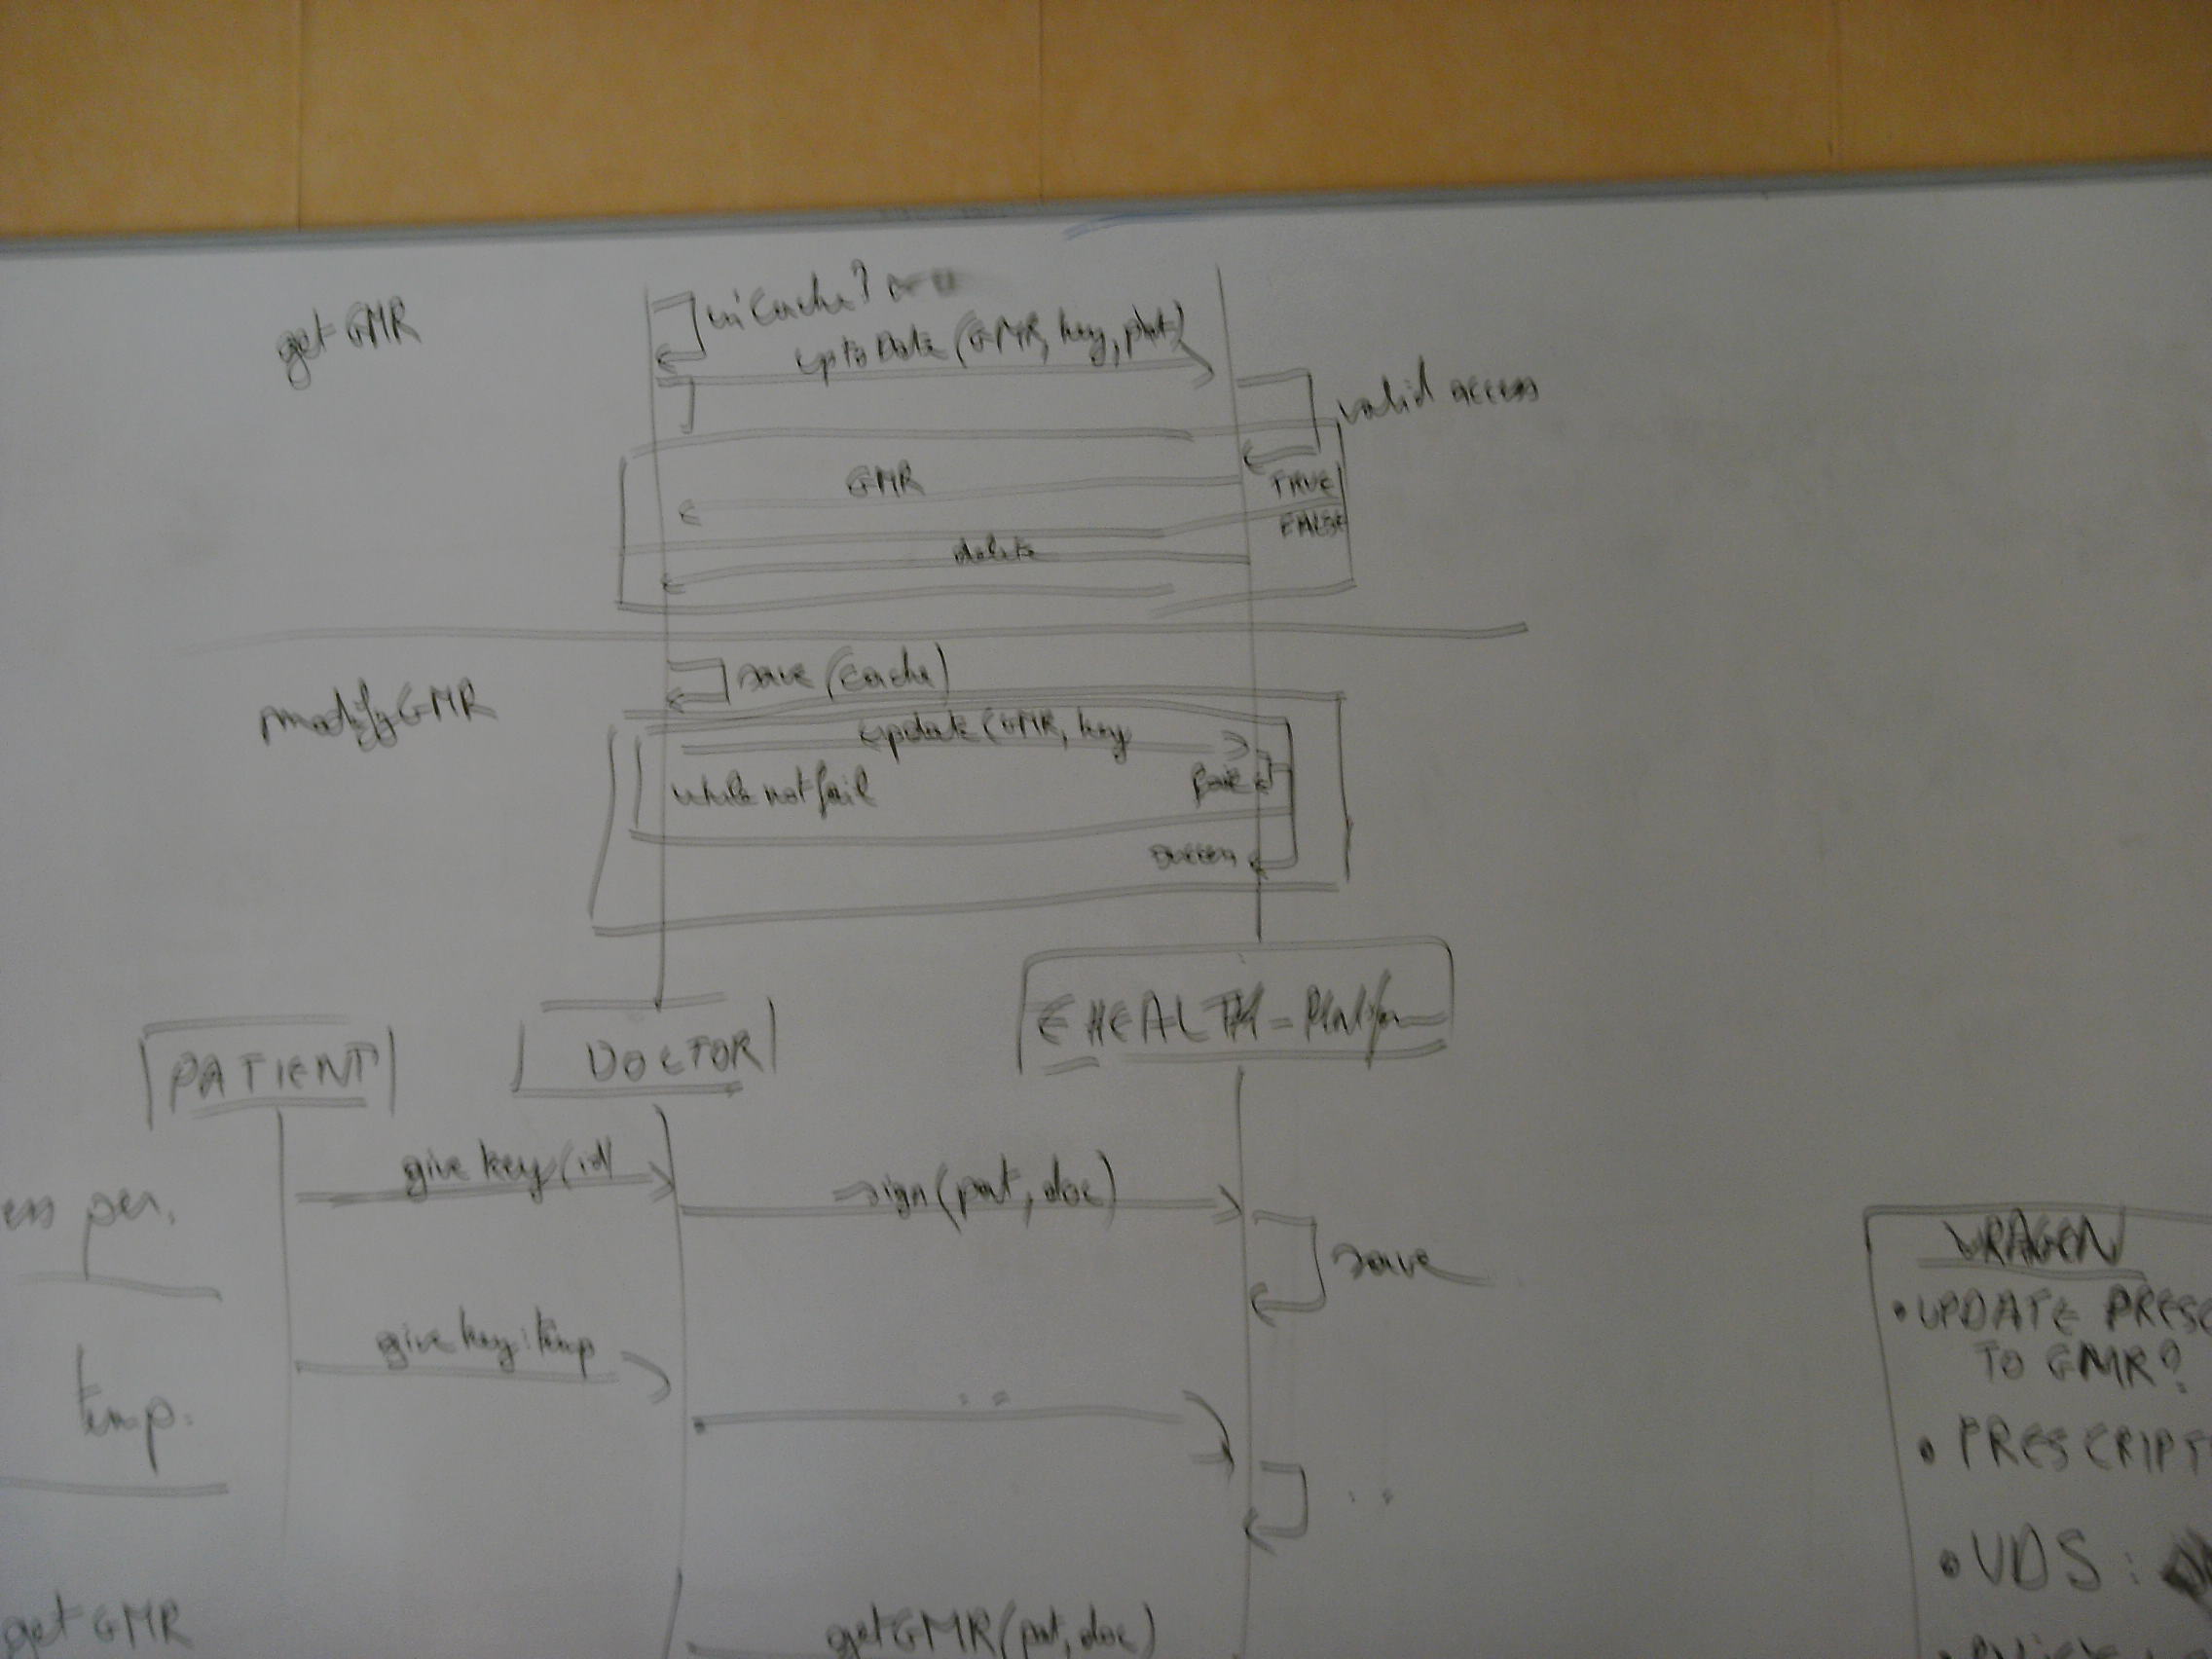 get GMR
in Cache?
up to Date (GMR, key, pat)
valid access
GMR
TRUE
FALSE
delete
modify GMR
save (Cache)
update (GMR, key
while not fail
fail
success
PATIENT
DOCTOR
EHEALTH - Platform
give key (id)
sign (pat, doc)
per.
save
give key: temp
temp.
get GMR
getGMR (pat, doc)
VRAGEN
• UPDATE PRESC
TO GMR?
• PRESCRIPT
• VDS: